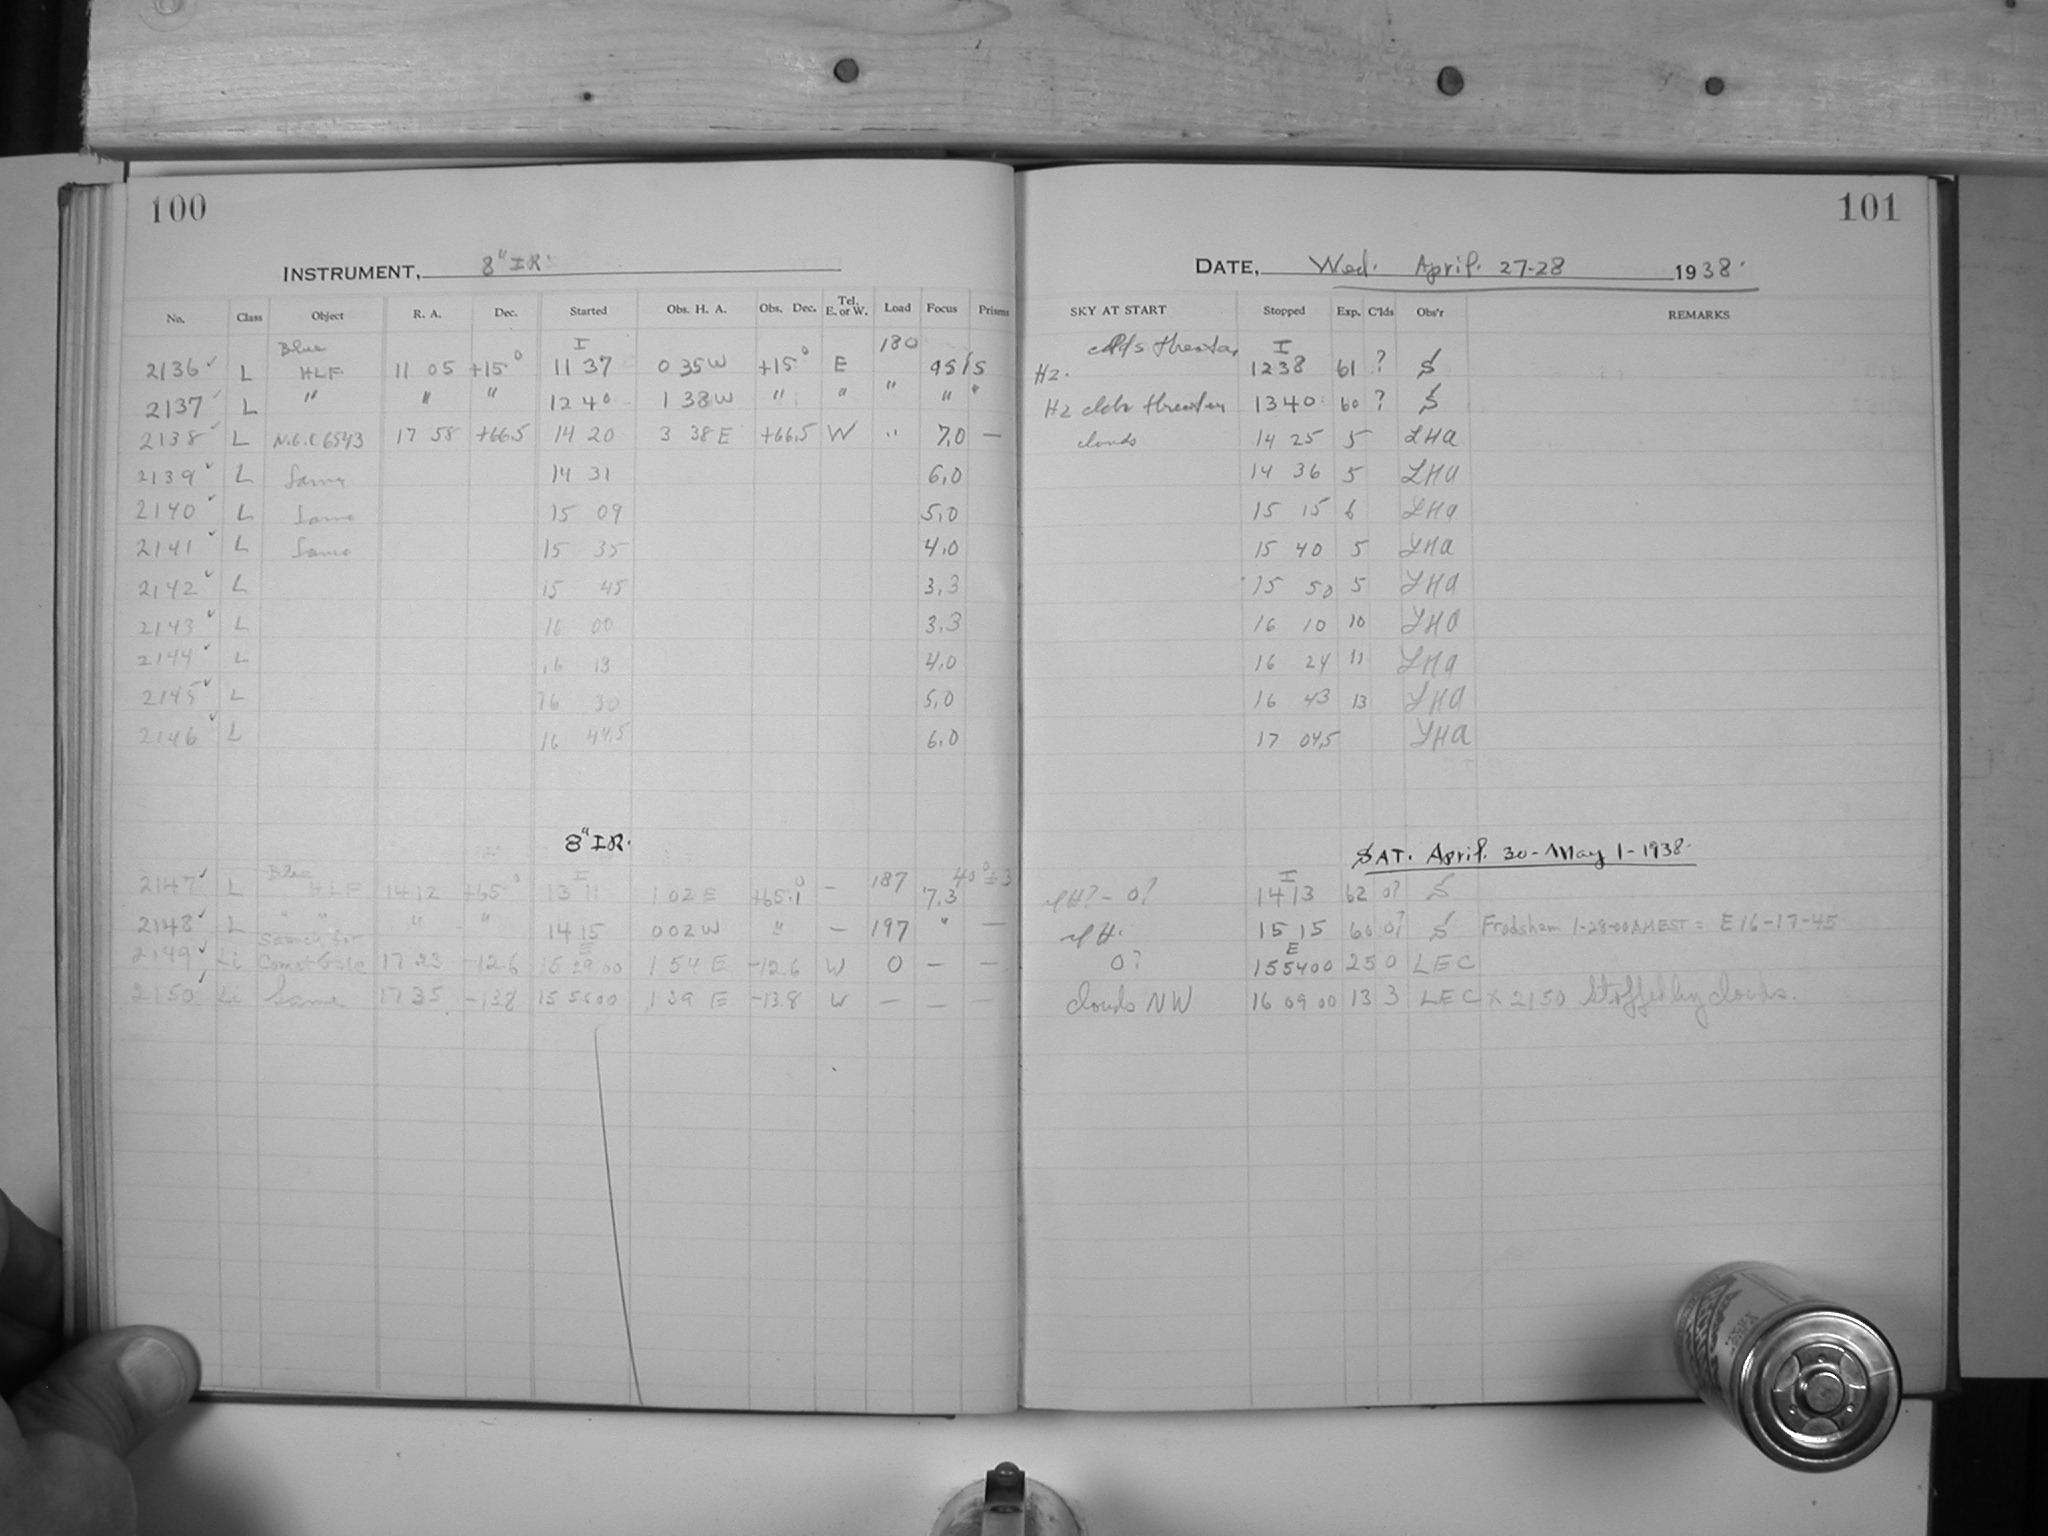 100
101
INSTRUMENT, 8" IR.
DATE, Wed. April. 27-28 1938.
No. Class Object R. A. Dec. Started Obs. H. A. Obs. Dec. Tel. E. or W. Load Focus Prisms SKY AT START Stopped Exp. C'lds Obs'r REMARKS
Blue I 180 I
2136 ✓ L HLF 11 05 +15° 11 37 0 35 W +15° E Hz. 12 38 61 ?
2137 ✓ L " " " 12 40 1 38 W " " " " " Hz 13 40 60 ?
2138 ✓ L N.G.C 6543 17 58 +66.5 14 20 3 38 E +66.5 W " 7.0 — clouds 14 25 5 LHA
2139 ✓ L Same 14 31 6.0 14 36 5 LHA
2140 ✓ L Same 15 09 5.0 15 15 6 LHA
2141 ✓ L Same 15 35 4.0 15 40 5 LHA
2142 ✓ L 15 45 3.3 15 50 5 LHA
2143 ✓ L 16 00 3.3 16 10 10 LHA
2144 ✓ L 16 13 4.0 16 24 11 LHA
2145 ✓ L 16 30 5.0 16 43 13 LHA
2146 ✓ L 16 44.5 6.0 17 04.5 LHA
8" IR. SAT. April. 30 - May 1 - 1938.
Blue I I
2147 ✓ L HLF 14 12 +65° 13 11 1 02 E +65.1° — 187 7.3 14 13 62 0?
2148 ✓ L " " " " 14 15 0 02 W " — 197 " — 15 15 60 0? Frodsham 1-28-00 AM EST = E 16-17-45
Search for E E
2149 ✓ Li Comet Gale 17 23 -12.6 15 29 00 1 54 E -12.6 W 0 — — 0? 15 54 00 25 0 LEC
2150 ✓ Li Same 17 35 -13.8 15 56 00 1 39 E -13.8 W — — — clouds NW 16 09 00 13 3 LEC x 2150 Stopped by clouds.